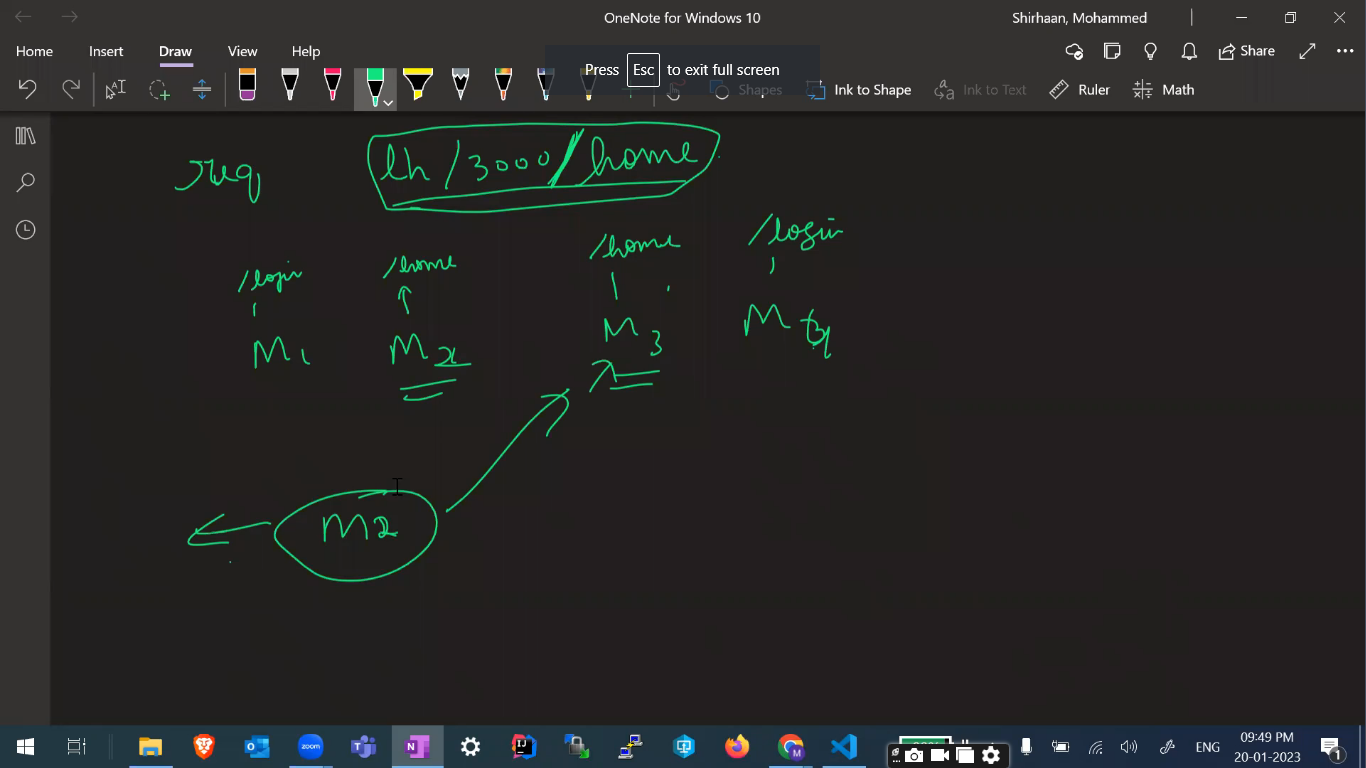 OneNote for Windows 10
Shirhaan, Mohammed
Home Insert Draw View Help
Share
Press Esc to exit full screen
Shapes Ink to Shape Ink to Text Ruler Math
req lh/3000/home
/login /home /home /login
M1 M2 M3 M
M2
zoom
ENG 09:49 PM
20-01-2023
1